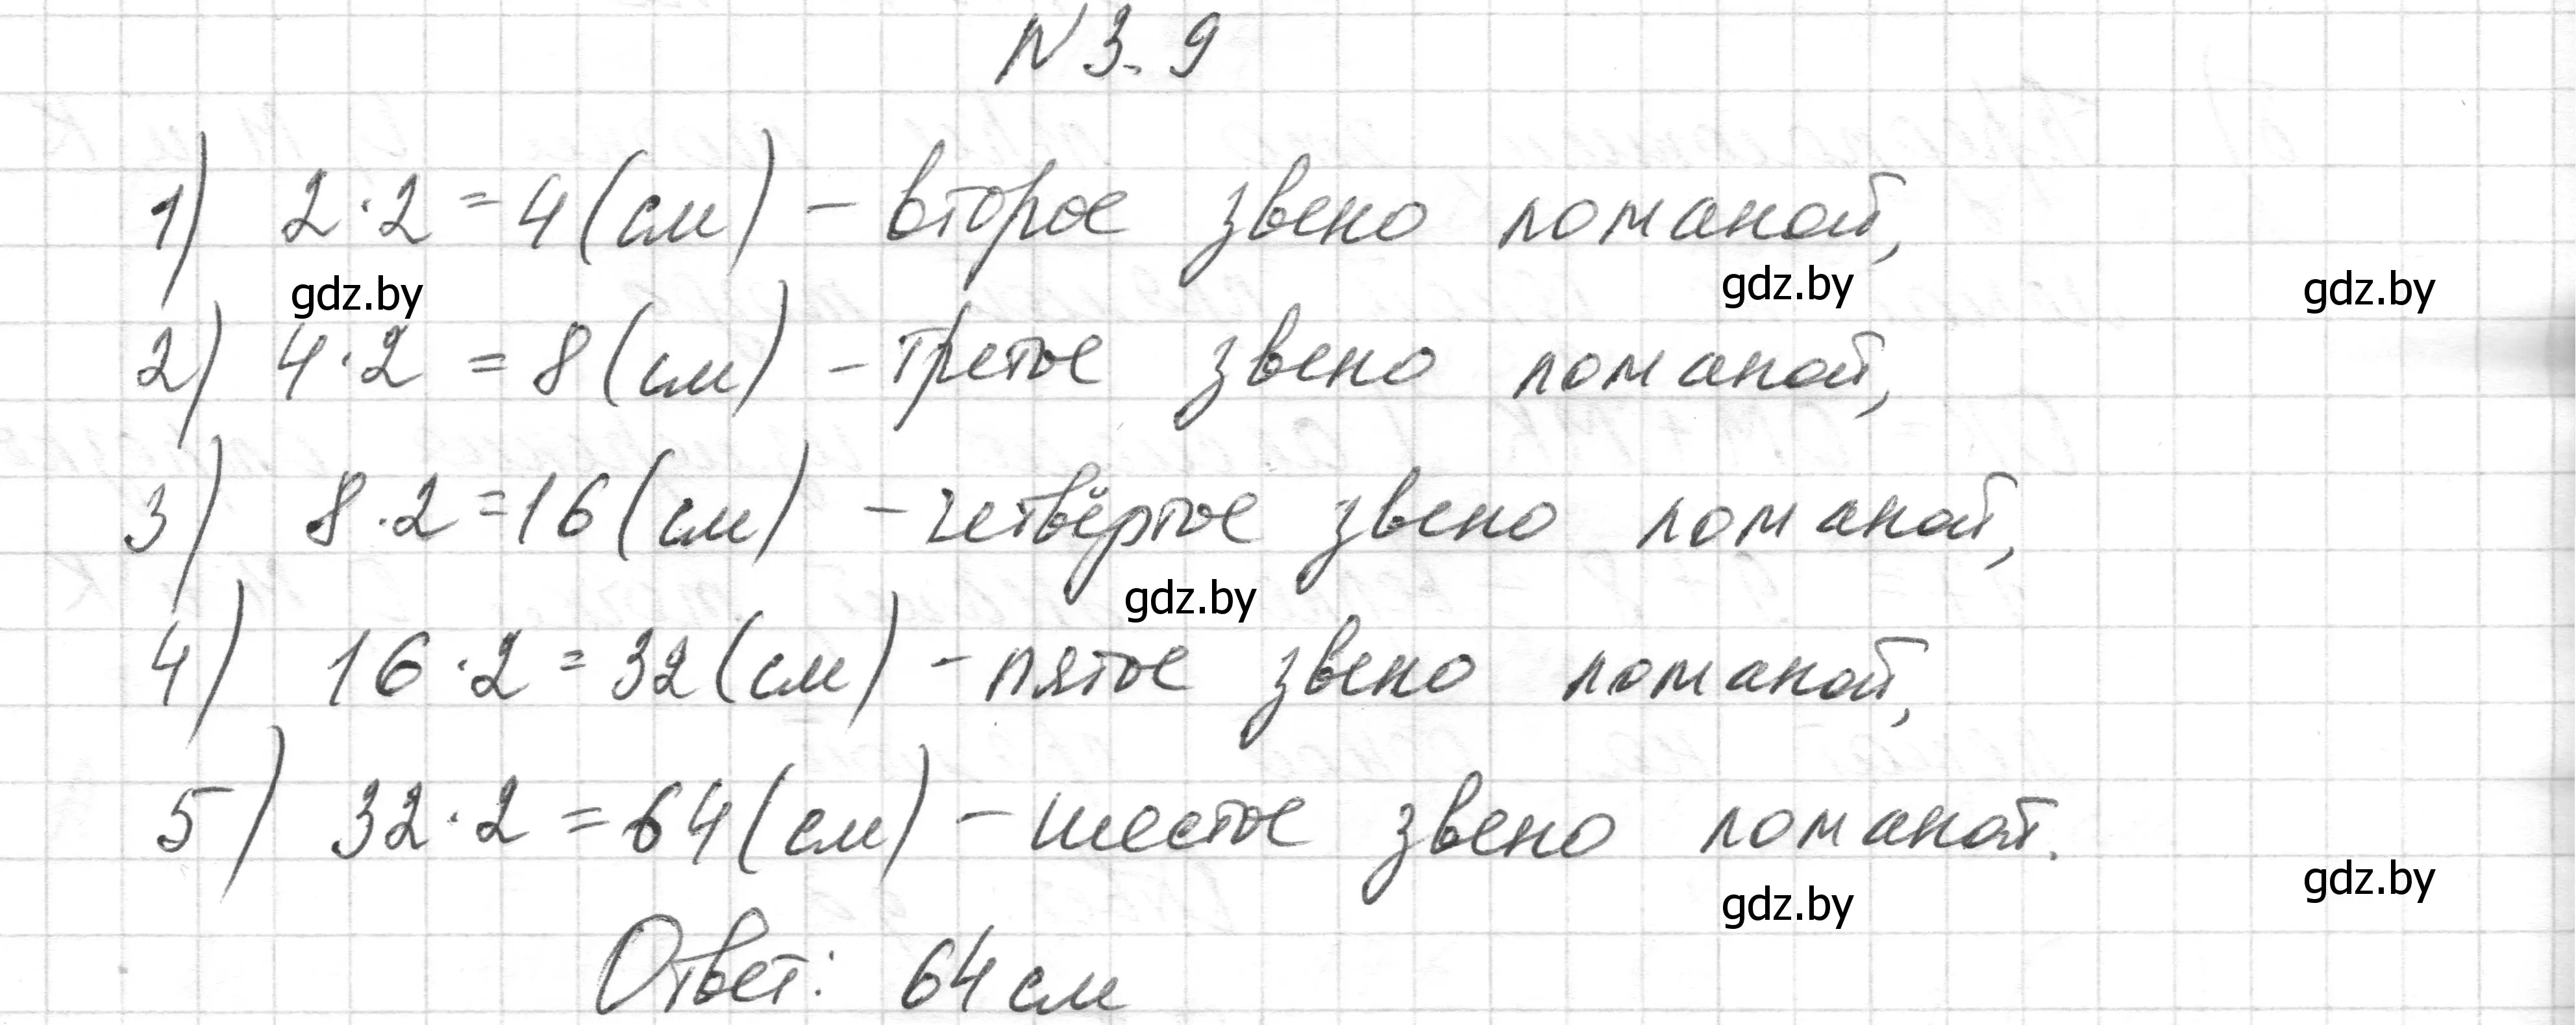 N 3.9
1) 2·2=4(см) – второе звено ломаной,
gdz.by gdz.by gdz.by
2) 4·2=8(см) – третье звено ломаной,
3) 8·2=16(см) – четвёртое звено ломаной,
gdz.by
4) 16·2=32(см) – пятое звено ломаной,
5) 32·2=64(см) – шестое звено ломаной.
gdz.by gdz.by
Ответ: 64 см